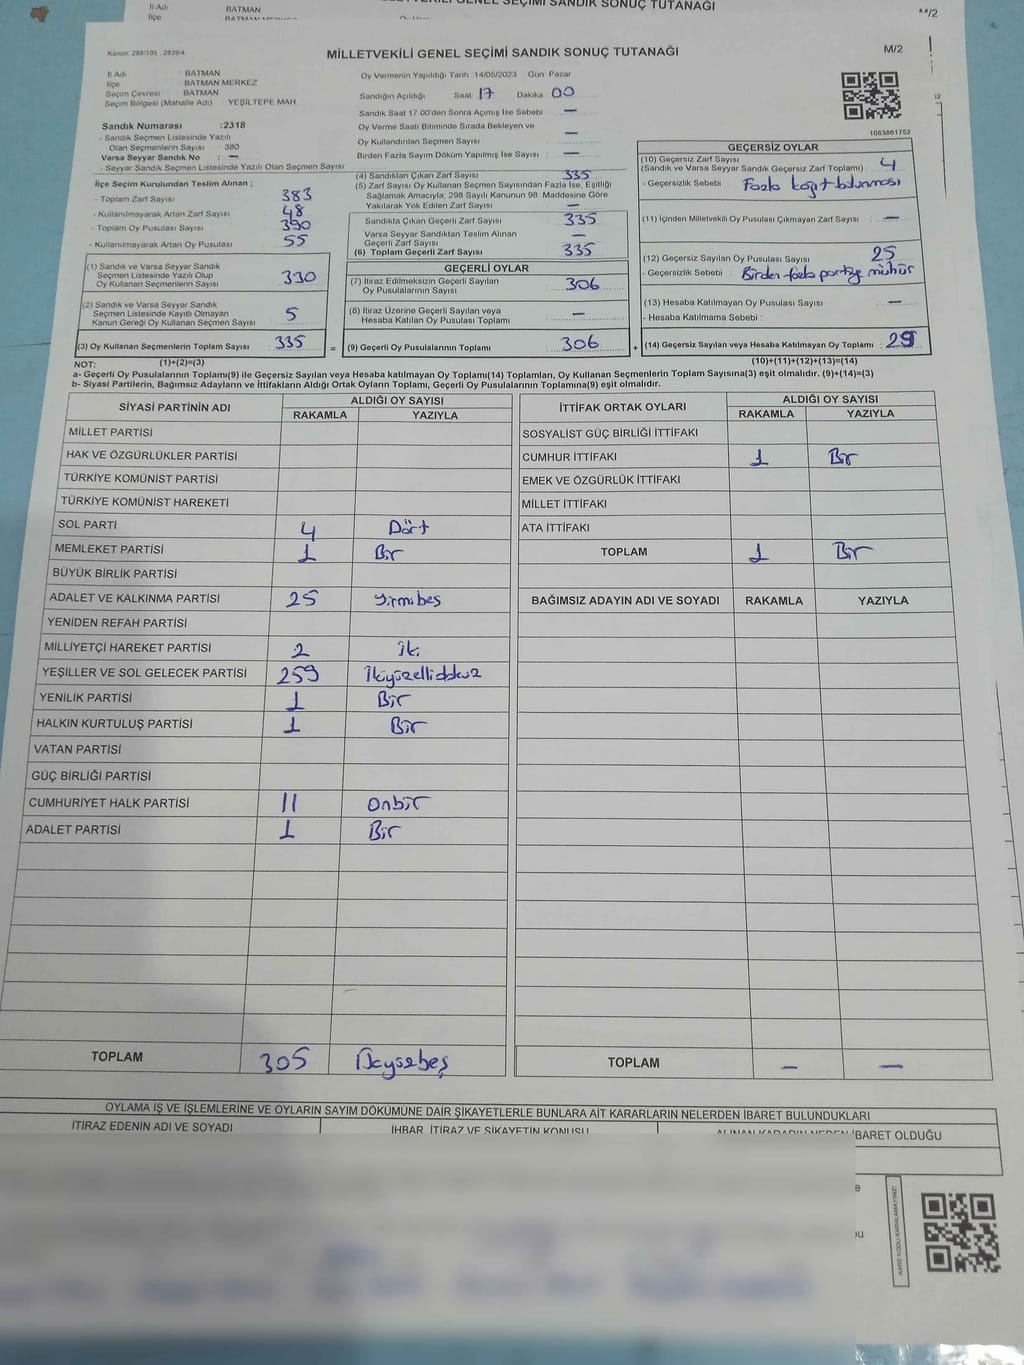 İl Adı BATMAN
İlçe
GENEL SEÇİMİ SANDIK SONUÇ TUTANAĞI
**/2
Kanun: 298/105 , 2839/4
MİLLETVEKİLİ GENEL SEÇİMİ SANDIK SONUÇ TUTANAĞI
M/2
İl Adı BATMAN
İlçe BATMAN MERKEZ
Seçim Çevresi BATMAN
Seçim Bölgesi (Mahalle Adı) YEŞİLTEPE MAH
Sandık Numarası :2318
- Sandık Seçmen Listesinde Yazılı
Olan Seçmenlerin Sayısı : 380
Varsa Seyyar Sandık No : —
- Seyyar Sandık Seçmen Listesinde Yazılı Olan Seçmen Sayısı
İlçe Seçim Kurulundan Teslim Alınan ;
- Toplam Zarf Sayısı : 383
- Kullanılmayarak Artan Zarf Sayısı : 48
- Toplam Oy Pusulası Sayısı : 390
- Kullanılmayarak Artan Oy Pusulası : 55
(1) Sandık ve Varsa Seyyar Sandık
Seçmen Listesinde Yazılı Olup
Oy Kullanan Seçmenlerin Sayısı : 330
(2) Sandık ve Varsa Seyyar Sandık
Seçmen Listesinde Kayıtlı Olmayan
Kanun Gereği Oy Kullanan Seçmen Sayısı : 5
(3) Oy Kullanan Seçmenlerin Toplam Sayısı : 335
Oy Vermenin Yapıldığı Tarih :14/05/2023 Gün :Pazar
Sandığın Açıldığı Saat 17 Dakika 00
Sandık Saat 17.00'den Sonra Açımış İse Sebebi : —
Oy Verme Saati Bitiminde Sırada Bekleyen ve
Oy Kullandırılan Seçmen Sayısı : —
Birden Fazla Sayım Döküm Yapılmış İse Sayısı : —
(4) Sandıktan Çıkan Zarf Sayısı : 335
(5) Zarf Sayısı Oy Kullanan Seçmen Sayısından Fazla İse, Eşitliği
Sağlamak Amacıyla; 298 Sayılı Kanunun 98. Maddesine Göre
Yakılarak Yok Edilen Zarf Sayısı : —
Sandıkta Çıkan Geçerli Zarf Sayısı : 335
Varsa Seyyar Sandıktan Teslim Alınan
Geçerli Zarf Sayısı : —
(6) Toplam Geçerli Zarf Sayısı : 335
GEÇERLİ OYLAR
(7) İtiraz Edilmeksizin Geçerli Sayılan
Oy Pusulalarının Sayısı : 306
(8) İtiraz Üzerine Geçerli Sayılan veya
Hesaba Katılan Oy Pusulası Toplamı : —
= (9) Geçerli Oy Pusulalarının Toplamı : 306
1083861752
GEÇERSİZ OYLAR
(10) Geçersiz Zarf Sayısı
(Sandık ve Varsa Seyyar Sandık Geçersiz Zarf Toplamı) : 4
- Geçersizlik Sebebi : Fazla kağıt bulunması
(11) İçinden Milletvekili Oy Pusulası Çıkmayan Zarf Sayısı : —
(12) Geçersiz Sayılan Oy Pusulası Sayısı : 25
- Geçersizlik Sebebi : Birden fazla partiye mühür
(13) Hesaba Katılmayan Oy Pusulası Sayısı : —
- Hesaba Katılmama Sebebi :
+ (14) Geçersiz Sayılan veya Hesaba Katılmayan Oy Toplamı : 29
NOT: (1)+(2)=(3) (10)+(11)+(12)+(13)=(14)
a- Geçerli Oy Pusulalarının Toplamı(9) ile Geçersiz Sayılan veya Hesaba katılmayan Oy Toplamı(14) Toplamları, Oy Kullanan Seçmenlerin Toplam Sayısına(3) eşit olmalıdır. (9)+(14)=(3)
b- Siyasi Partilerin, Bağımsız Adayların ve İttifakların Aldığı Ortak Oyların Toplamı, Geçerli Oy Pusulalarının Toplamına(9) eşit olmalıdır.
SİYASİ PARTİNİN ADI ALDIĞI OY SAYISI
RAKAMLA YAZIYLA
MİLLET PARTİSİ
HAK VE ÖZGÜRLÜKLER PARTİSİ
TÜRKİYE KOMÜNİST PARTİSİ
TÜRKİYE KOMÜNİST HAREKETİ
SOL PARTİ 4 Dört
MEMLEKET PARTİSİ 1 Bir
BÜYÜK BİRLİK PARTİSİ
ADALET VE KALKINMA PARTİSİ 25 Yirmibeş
YENİDEN REFAH PARTİSİ
MİLLİYETÇİ HAREKET PARTİSİ 2 İki
YEŞİLLER VE SOL GELECEK PARTİSİ 259 İkiyüzellidokuz
YENİLİK PARTİSİ 1 Bir
HALKIN KURTULUŞ PARTİSİ 1 Bir
VATAN PARTİSİ
GÜÇ BİRLİĞİ PARTİSİ
CUMHURİYET HALK PARTİSİ 11 Onbir
ADALET PARTİSİ 1 Bir
TOPLAM 305 Üçyüzbeş
İTTİFAK ORTAK OYLARI ALDIĞI OY SAYISI
RAKAMLA YAZIYLA
SOSYALİST GÜÇ BİRLİĞİ İTTİFAKI
CUMHUR İTTİFAKI 1 Bir
EMEK VE ÖZGÜRLÜK İTTİFAKI
MİLLET İTTİFAKI
ATA İTTİFAKI
TOPLAM 1 Bir
BAĞIMSIZ ADAYIN ADI VE SOYADI RAKAMLA YAZIYLA
TOPLAM — —
OYLAMA İŞ VE İŞLEMLERİNE VE OYLARIN SAYIM DÖKÜMÜNE DAİR ŞİKAYETLERLE BUNLARA AİT KARARLARIN NELERDEN İBARET BULUNDUKLARI
İTİRAZ EDENİN ADI VE SOYADI İHBAR, İTİRAZ VE ŞİKAYETİN KONUSU ALINAN KARARIN NEDEN İBARET OLDUĞU
KARE KODU KARALAMAYINIZ!